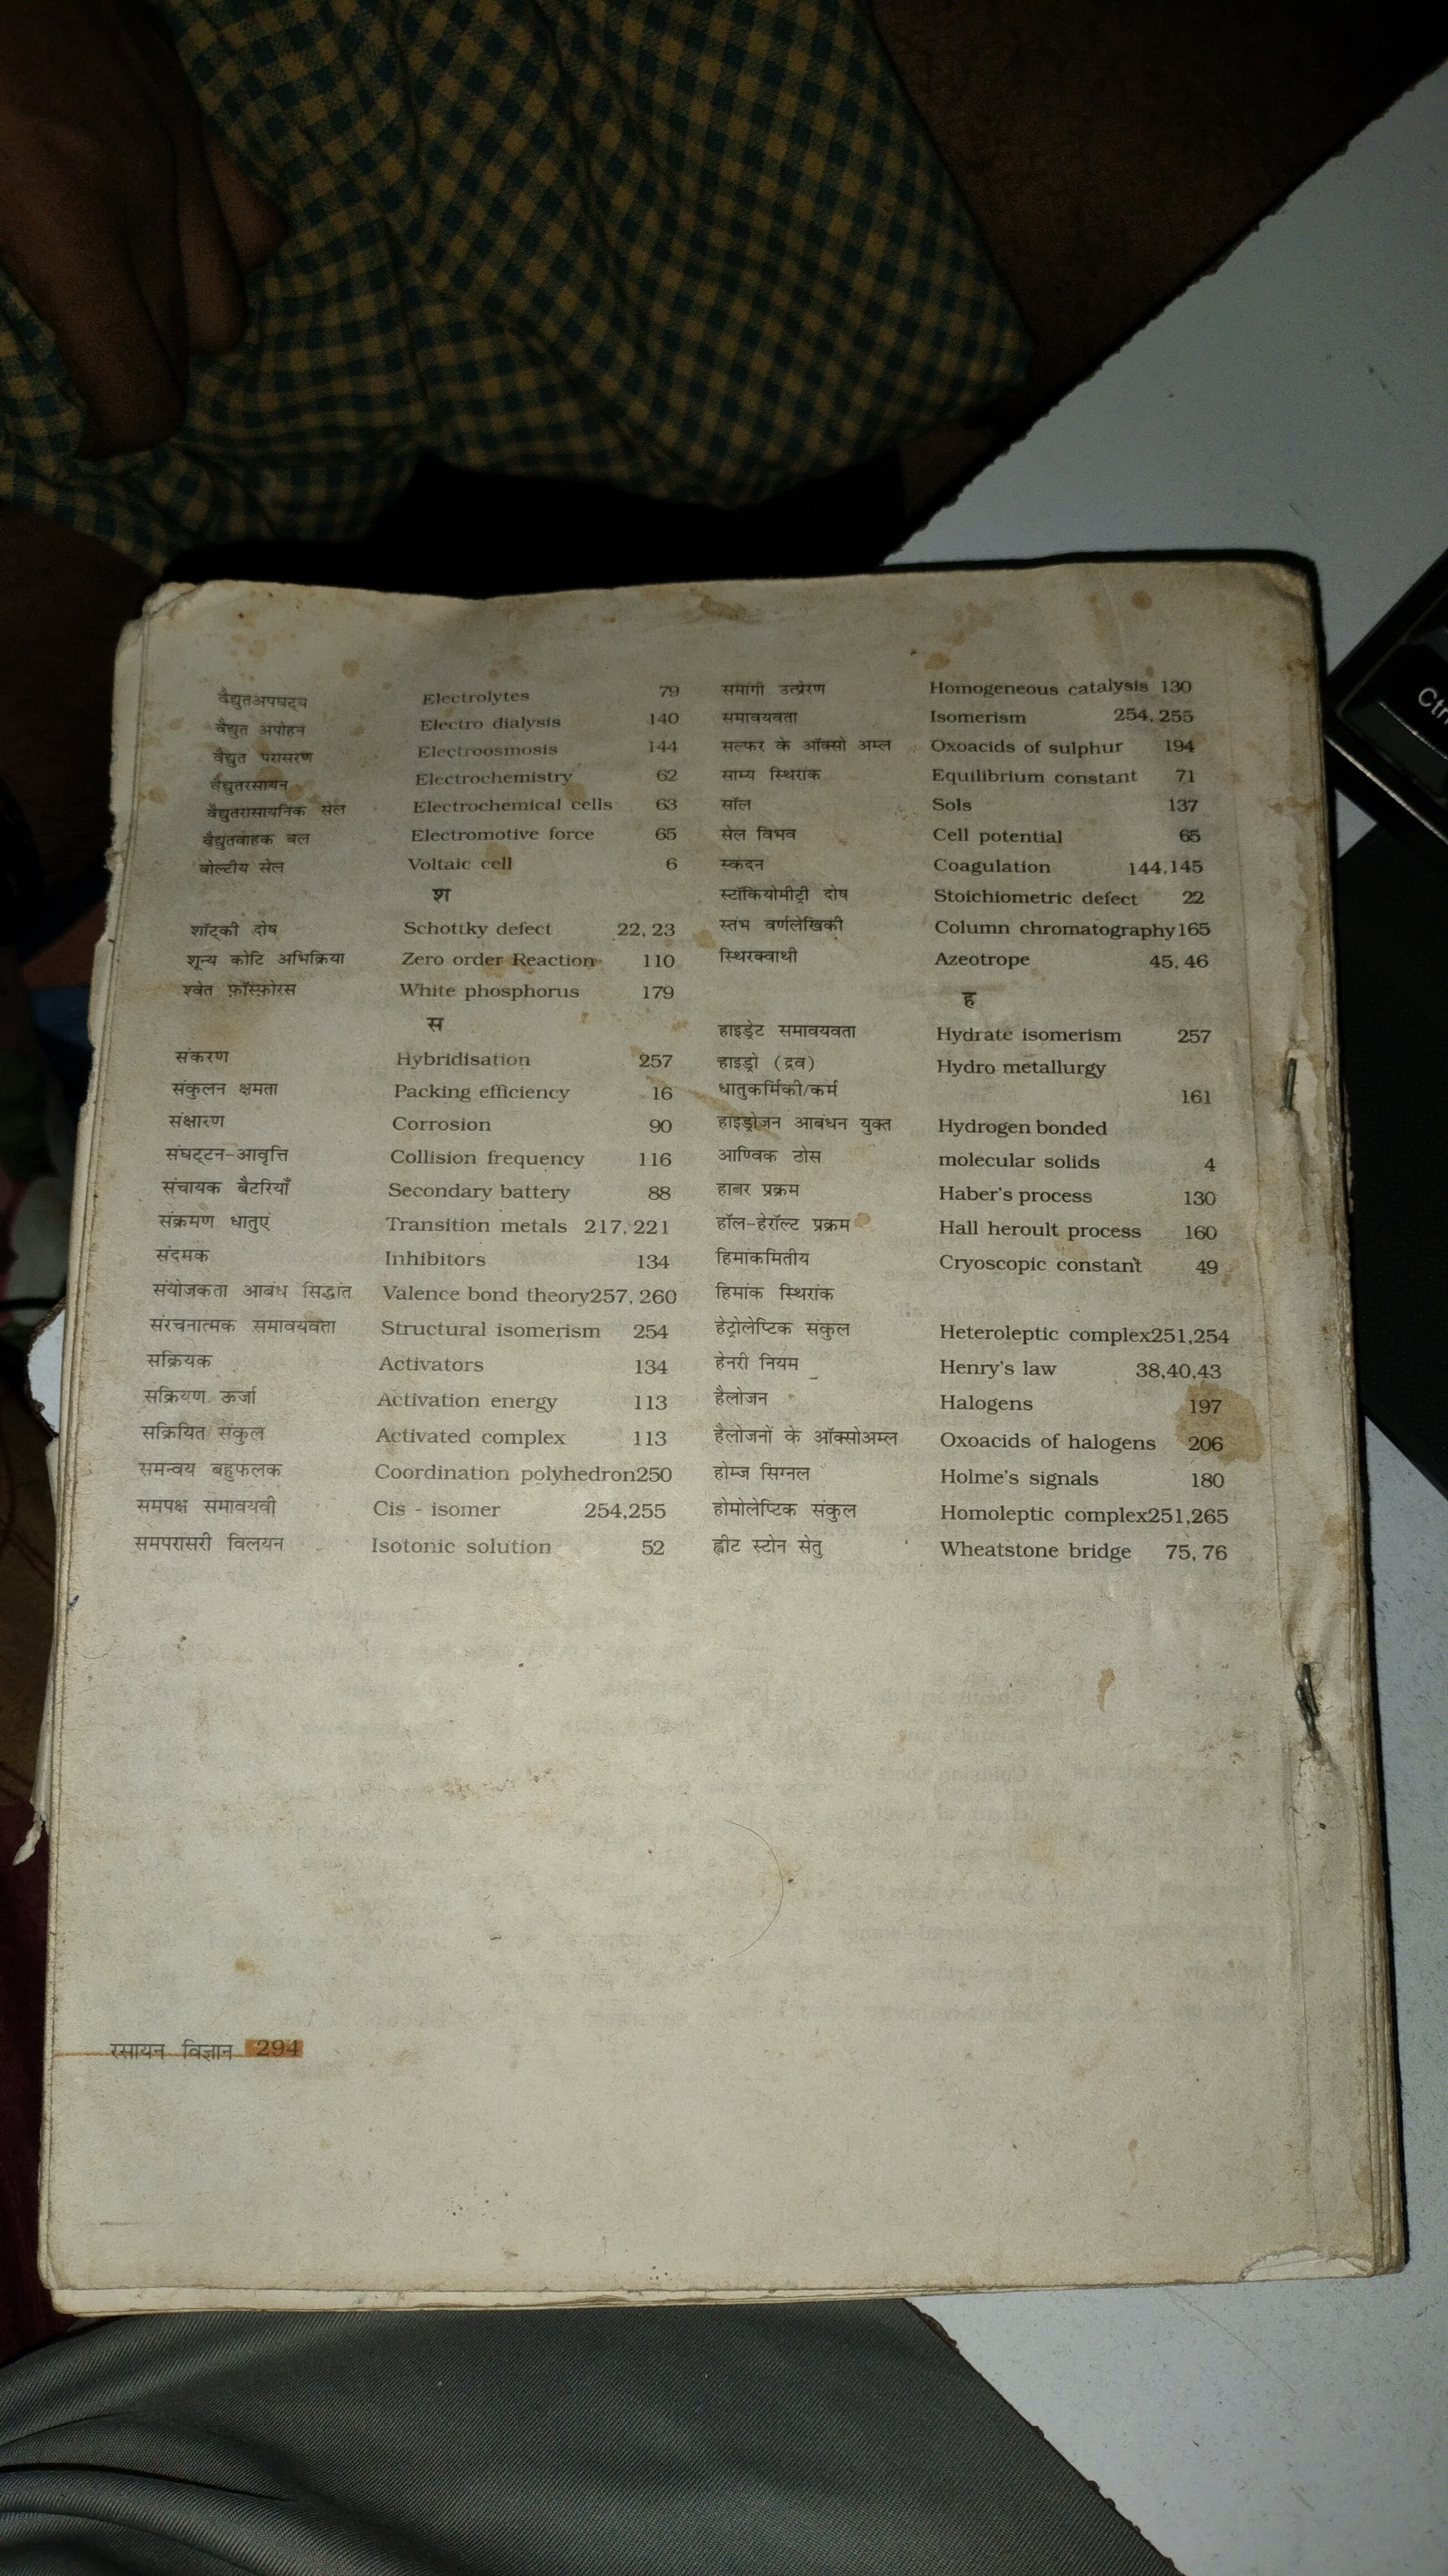 वैद्युतअपघट्य Electrolytes 79
वैद्युत अपोहन Electro dialysis 140
वैद्युत परासरण Electroosmosis 144
वैद्युतरसायन Electrochemistry 62
वैद्युतरासायनिक सेल Electrochemical cells 63
वैद्युतवाहक बल Electromotive force 65
वोल्टीय सेल Voltaic cell 6
श
शॉट्की दोष Schottky defect 22, 23
शून्य कोटि अभिक्रिया Zero order Reaction 110
श्वेत फ़ॉस्फ़ोरस White phosphorus 179
स
संकरण Hybridisation 257
संकुलन क्षमता Packing efficiency 16
संक्षारण Corrosion 90
संघट्टन-आवृत्ति Collision frequency 116
संचायक बैटरियाँ Secondary battery 88
संक्रमण धातुएं Transition metals 217, 221
संदमक Inhibitors 134
संयोजकता आबंध सिद्धांत Valence bond theory257, 260
संरचनात्मक समावयवता Structural isomerism 254
सक्रियक Activators 134
सक्रियण ऊर्जा Activation energy 113
सक्रियित संकुल Activated complex 113
समन्वय बहुफलक Coordination polyhedron250
समपक्ष समावयवी Cis - isomer 254,255
समपरासरी विलयन Isotonic solution 52
समांगी उत्प्रेरण Homogeneous catalysis 130
समावयवता Isomerism 254, 255
सल्फर के ऑक्सो अम्ल Oxoacids of sulphur 194
साम्य स्थिरांक Equilibrium constant 71
सॉल Sols 137
सेल विभव Cell potential 65
स्कंदन Coagulation 144,145
स्टॉकियोमीट्री दोष Stoichiometric defect 22
स्तंभ वर्णलेखिकी Column chromatography165
स्थिरक्वाथी Azeotrope 45, 46
ह
हाइड्रेट समावयवता Hydrate isomerism 257
हाइड्रो (द्रव) Hydro metallurgy
धातुकर्मिकी/कर्म 161
हाइड्रोजन आबंधन युक्त Hydrogen bonded
आण्विक ठोस molecular solids 4
हाबर प्रक्रम Haber's process 130
हॉल-हेरॉल्ट प्रक्रम Hall heroult process 160
हिमांकमितीय Cryoscopic constant 49
हिमांक स्थिरांक
हेट्रोलेप्टिक संकुल Heteroleptic complex251,254
हेनरी नियम Henry's law 38,40,43
हैलोजन Halogens 197
हैलोजनों के ऑक्सोअम्ल Oxoacids of halogens 206
होम्ज सिग्नल Holme's signals 180
होमोलेप्टिक संकुल Homoleptic complex251,265
ह्वीट स्टोन सेतु Wheatstone bridge 75, 76
रसायन विज्ञान 294